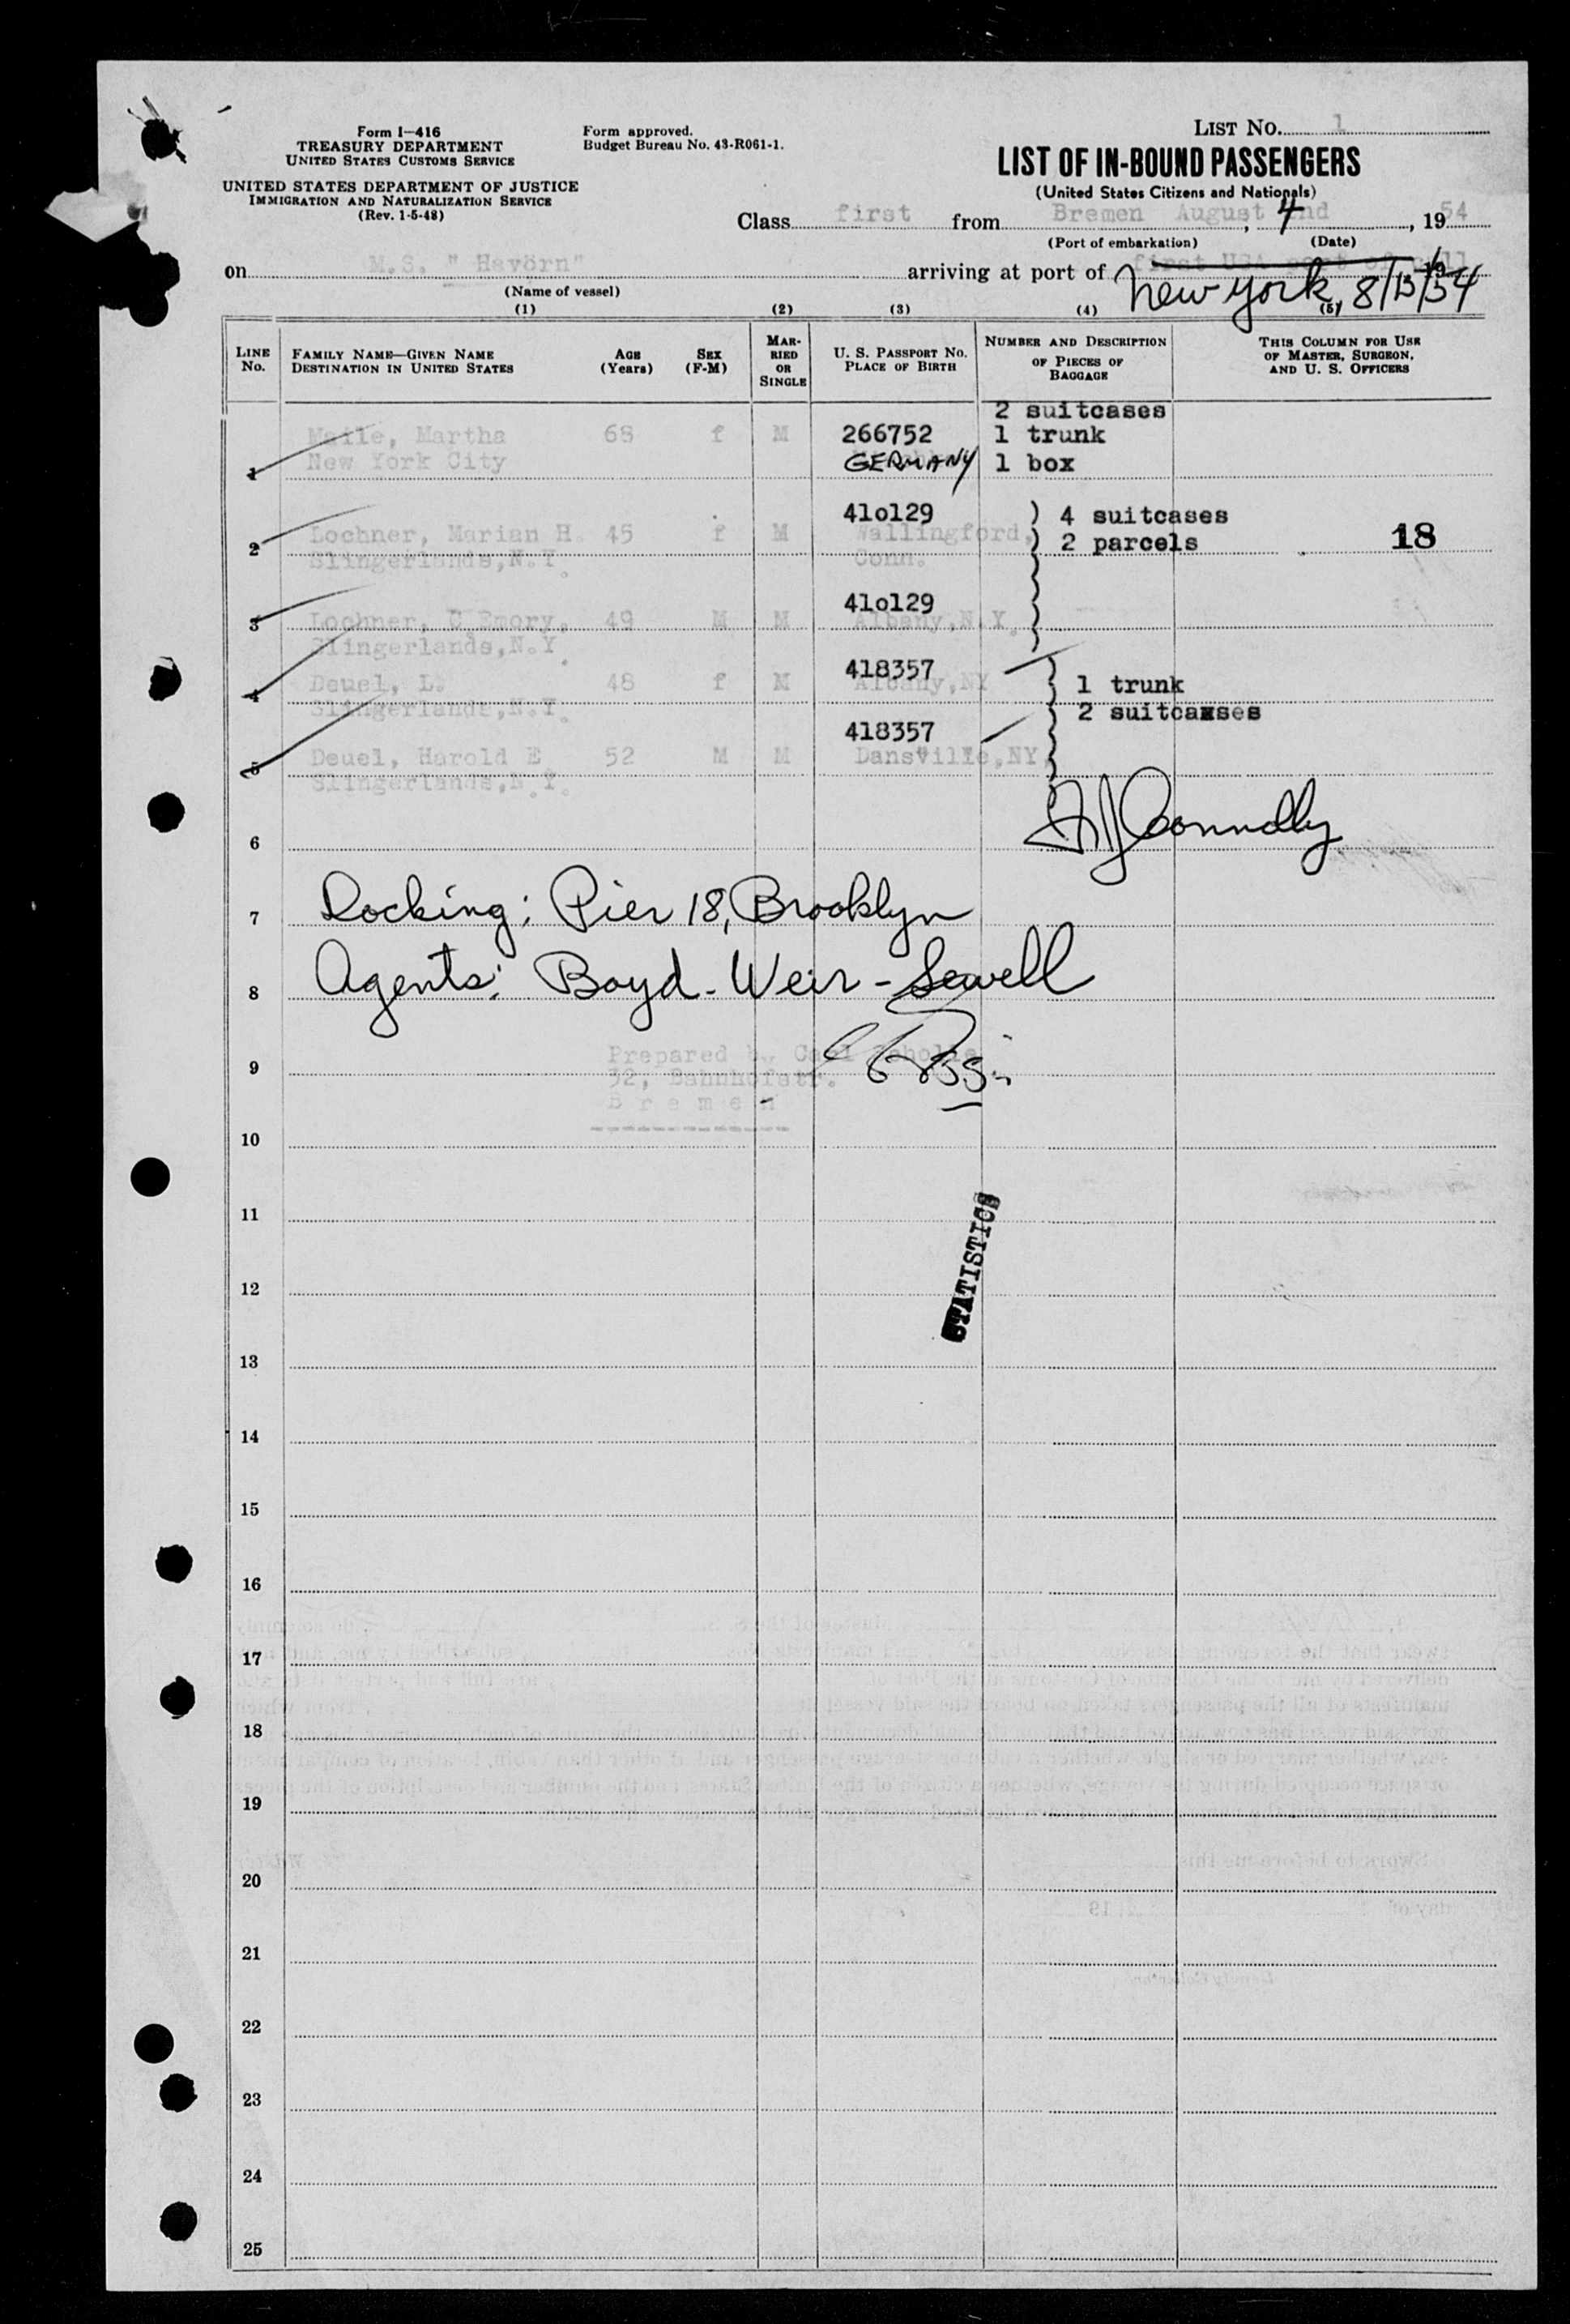 Form I-416
TREASURY DEPARTMENT
UNITED STATES CUSTOMS SERVICE
UNITED STATES DEPARTMENT OF JUSTICE
IMMIGRATION AND NATURALIZATION SERVICE
(Rev. 1-5-48)
Form approved.
Budget Bureau No. 43-R061-1.
LIST NO. 1
LIST OF IN-BOUND PASSENGERS
(United States Citizens and Nationals)
Class first from Bremen August 4 nd, 1954
(Port of embarkation) (Date)
on M.S. "Havörn" arriving at port of first USA port of call
New York, 8/13/54
(Name of vessel)
(1) (2) (3) (4) (5)
LINE NO. FAMILY NAME—GIVEN NAME DESTINATION IN UNITED STATES AGE (Years) SEX (F-M) MARRIED OR SINGLE U. S. PASSPORT NO. PLACE OF BIRTH NUMBER AND DESCRIPTION OF PIECES OF BAGGAGE THIS COLUMN FOR USE OF MASTER, SURGEON, AND U. S. OFFICERS
2 suitcases
Martha 68 f M 266752 1 trunk
1 New York City GERMANY 1 box
410129 ) 4 suitcases
2 Lochner, Marian H. 45 f M Wallingford, ) 2 parcels 18
Slingerlands, N.Y. Conn.
410129
3 Lochner, C Emory, 49 M M Albany, N.Y.
Slingerlands, N.Y.
418357
4 Deuel, L. 48 f M Albany, NY 1 trunk
Slingerlands, N.Y. 2 suitcaxses
418357
5 Deuel, Harold E 52 M M Dansville, NY
Slingerlands, N.Y.
Connolly
6
7 Docking: Pier 18, Brooklyn
8 Agents: Boyd-Weir-Sewell
Prepared by Carl
9 32, Bahnhofstr.
Bremen
10
11
STATISTICS
12
13
14
15
16
17
18
19
20
21
22
23
24
25